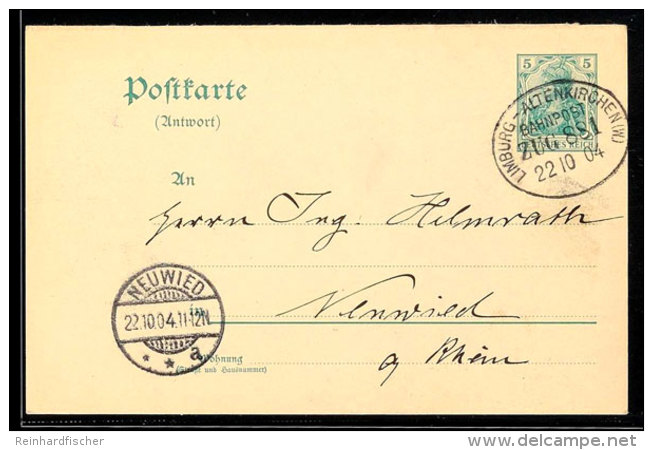 5 5
Postkarte
(Antwort)
LIMBURG-ALTENKIRCHEN (W)
BAHNPOST
ZUG 881
22 10 04
REICH
An
Herrn Ing. Helmrath
in
Neuwied
a/ Rhein
NEUWIED
22.10.04.11-12N
* * a
Wohnung
(Straße und Hausnummer)
Reinhardfischer
delcampe.net